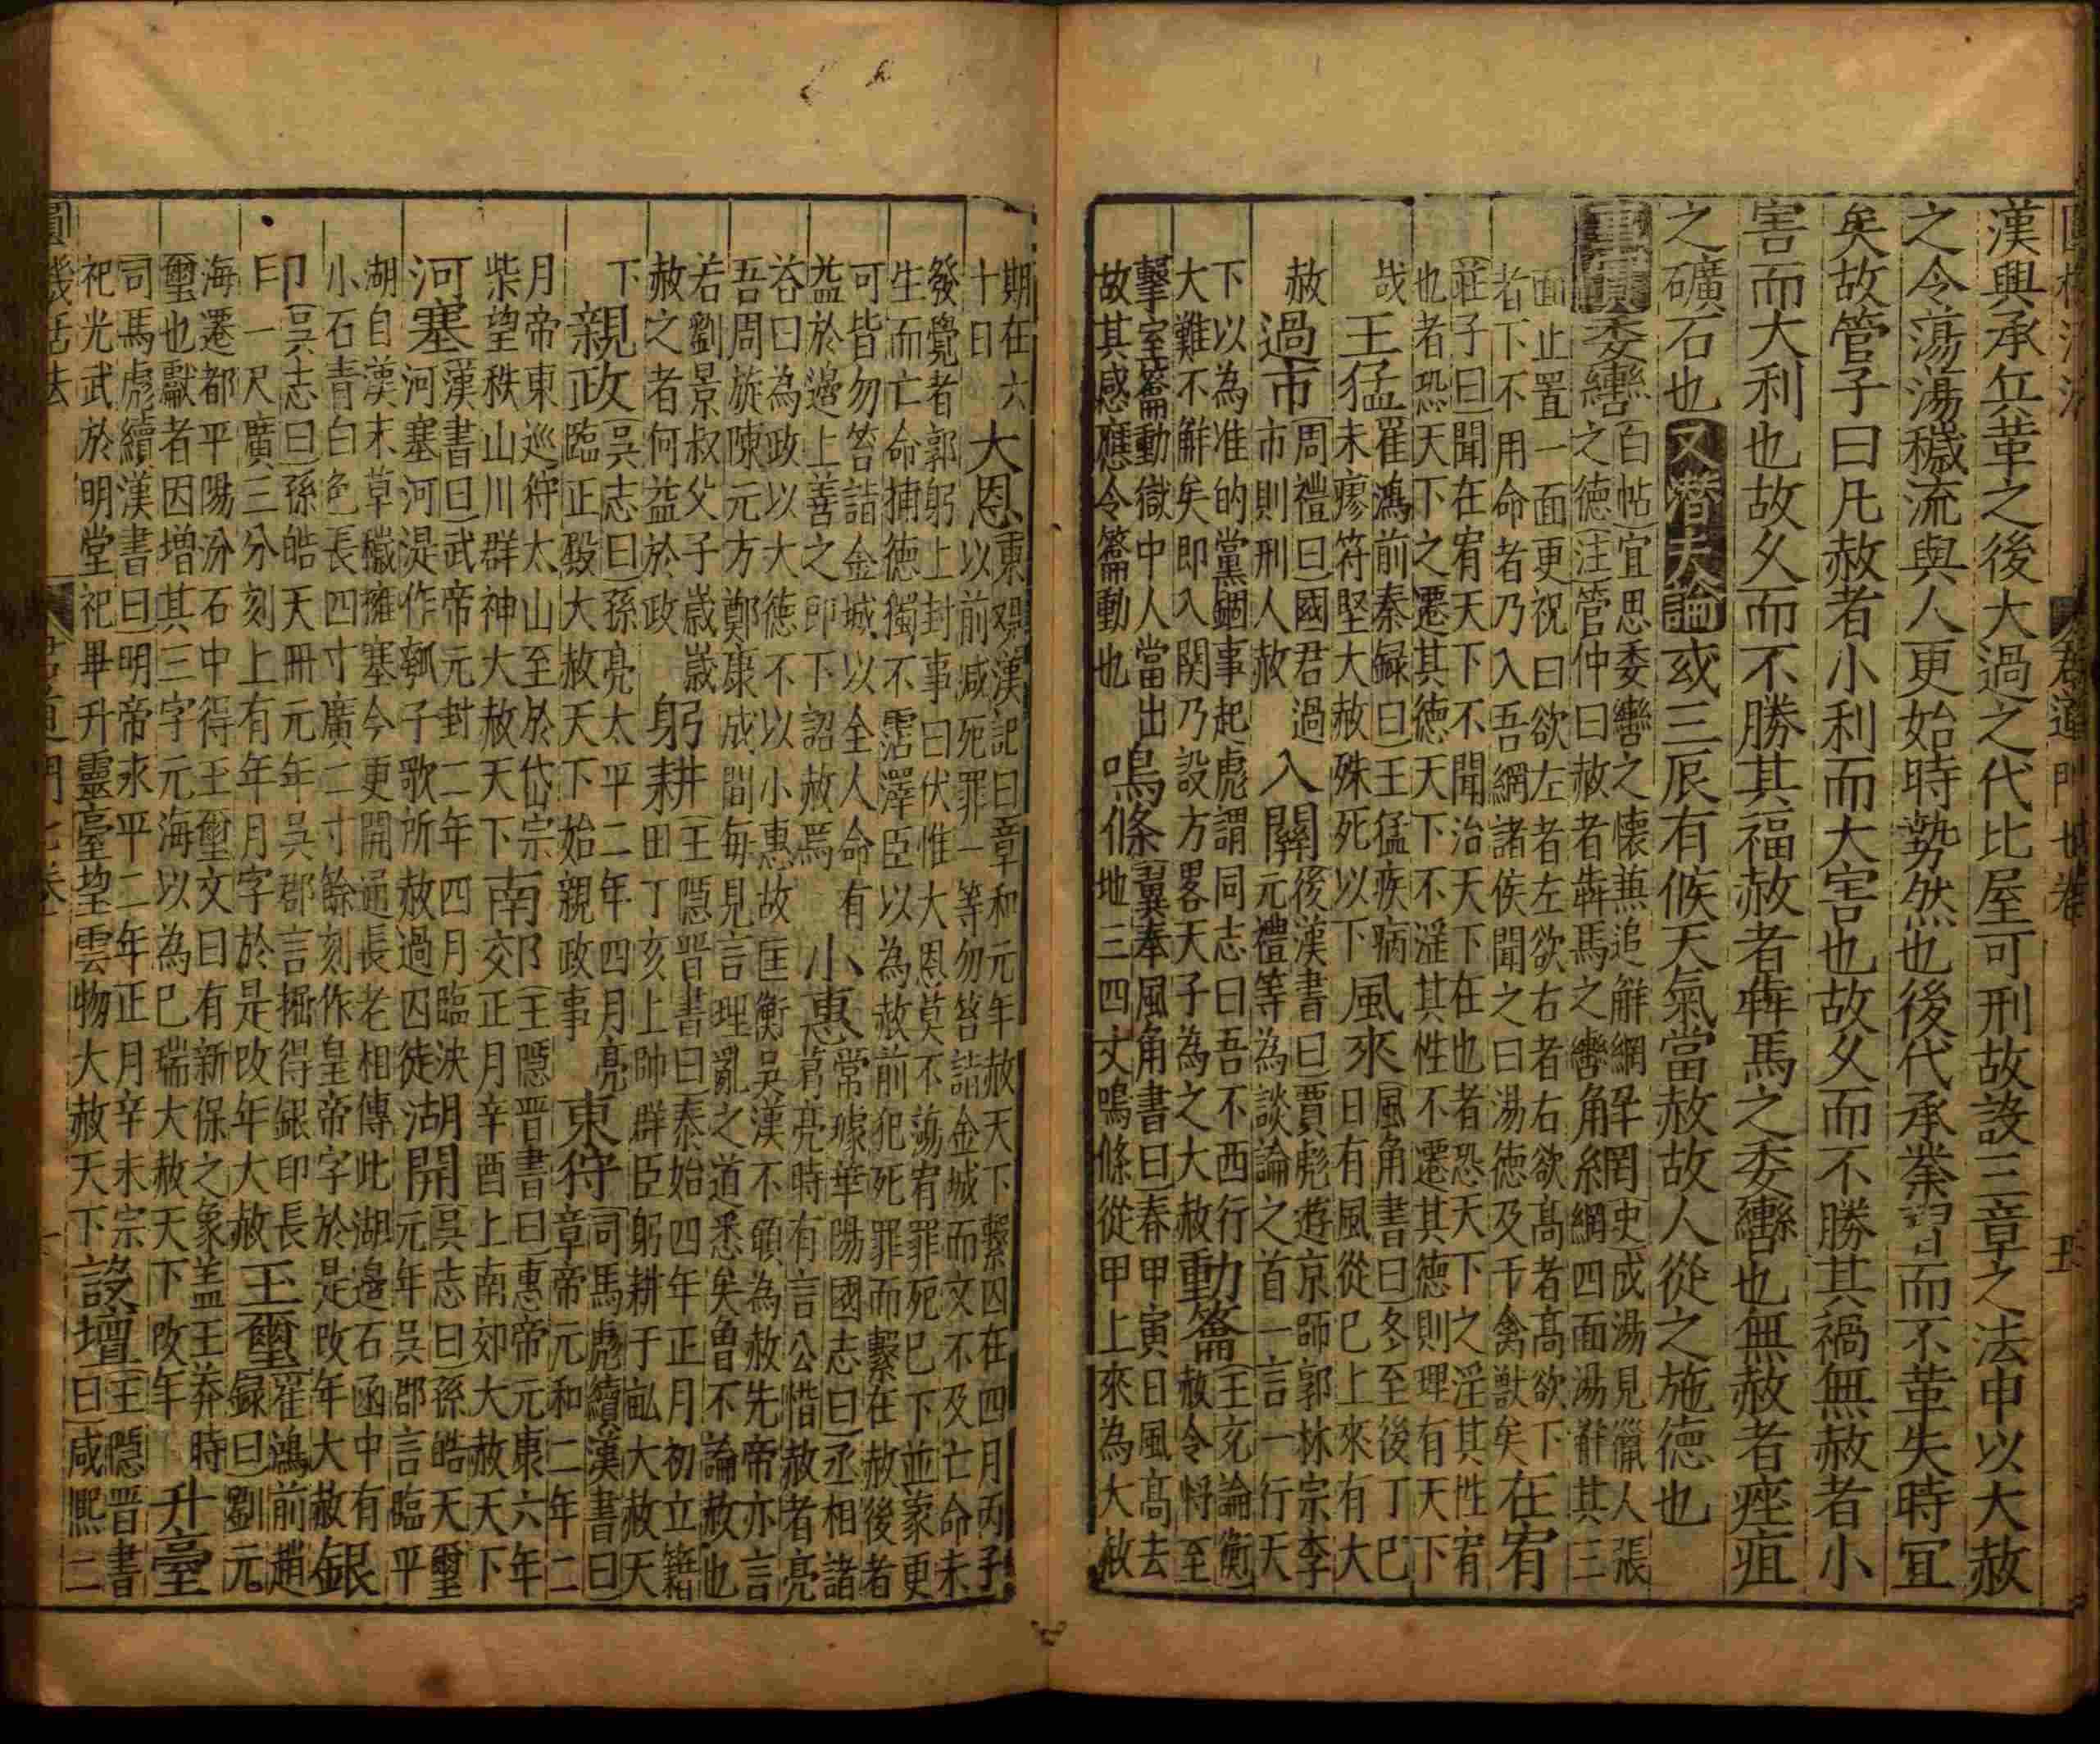 君道門七卷 五
漢興承兵革之後大過之代比屋可刑故設三章之法申以大赦
之令蕩滌穢流與人更始時勢然也後代承業習而不革失時宜
矣故管子曰凡赦者小利而大害也故久而不勝其禍無赦者小
害而大利也故久而不勝其福赦者犇馬之委轡也無赦者痤疽
之礦石也 又潜夫論 或三辰有候天氣當赦故人從之施德也
事實 委轡
白帖宜思委轡之懐兼追
之德注管仲曰赦者犇馬之轡
觧網
觧網
觧罔史成湯見獵人張
四面湯觧其三
面止置一面更祝曰欲左者左欲右者右欲髙者髙欲下
者下不用命者乃入吾網諸侯聞之曰湯徳及于禽獸矣
在宥
莊子曰聞在宥天下不聞治天下在也者恐天下之淫其性宥
也者恐天下之遷其徳天下不淫其性不遷其徳則理有天下
哉
王猛
崔鴻前秦録曰王猛疾病
未瘳符堅大赦殊死以下
風來
風角書曰冬至後丁巳
日有風從巳上來有大
赦
過市
周禮曰國君過
市則刑人赦
入關
後漢書曰賈彪遊京師郭林宗李
元禮等為談論之首一言一行天
下以為准的黨錮事起彪謂同志曰吾不西行
大難不觧矣即入関乃設方畧天子為之大赦
動籥
王充論衡
赦令将至
繫室籥動獄中人當出
故其感應令籥動也
鳴條
翼奉風角書曰春甲寅日風髙去
地三四丈鳴條從甲上來為大赦
期在六
十日
大恩
東观漢記曰章和元年赦天下繫囚在四月丙子
以前减死罪一等勿笞詣金城而文不及亡命未
發覺者郭躬上封事曰伏惟大恩莫不蕩宥罪死巳下並蒙更
生而亡命捕徳獨不霑澤臣以為赦前犯死罪而繫在赦後者
可皆勿笞詣金城以全人命有
益於邊上善之即下詔赦焉
小惠
常璩華陽國志曰丞相諸
葛亮時有言公惜赦者亮
荅曰為政以大徳不以小惠故匡衡吳漢不頋為赦先帝亦言
吾周旋陳元方鄭康成間每見言理亂之道悉矣曽不論赦也
若劉景叔父子歳歳
赦之者何益於政
躬耕
王隱晋書曰泰始四年正月初立籍
田丁亥上帥群臣躬耕于畆大赦天
下
親政
吳志曰孫亮太平二年四月亮
臨正殿大赦天下始親政事
東狩
司馬彪續漢書曰
章帝元和二年二
月帝東巡狩太山至於岱宗
柴望秩山川群神大赦天下
南郊
王隱晋書曰惠帝元康六年
正月辛酉上南郊大赦天下
河塞
漢書曰武帝元封二年四月臨决
河塞河湜作瓠子歌所赦過囚徒
湖開
吳志曰孫皓天璽
元年吳郡言臨平
湖自漢末草穢擁塞今更開通長老相傳此湖邊石函中有
小石青白色長四寸廣二寸餘刻作皇帝字於是改年大赦
銀
印
吳志曰孫皓天冊元年吳郡言掘得銀印長
一尺廣三分刻上有年月字於是改年大赦
玉璽
崔鴻前趙
録曰劉元
海遷都平陽汾石中得玉璽文曰有新保之象盖王莽時
璽也獻者因增其三字元海以為巳瑞大赦天下改年
升臺
司馬彪續漢書曰明帝永平二年正月辛未宗
祀光武於明堂祀畢升靈臺望雲物大赦天下
設壇
王隱晋書
曰咸熙二